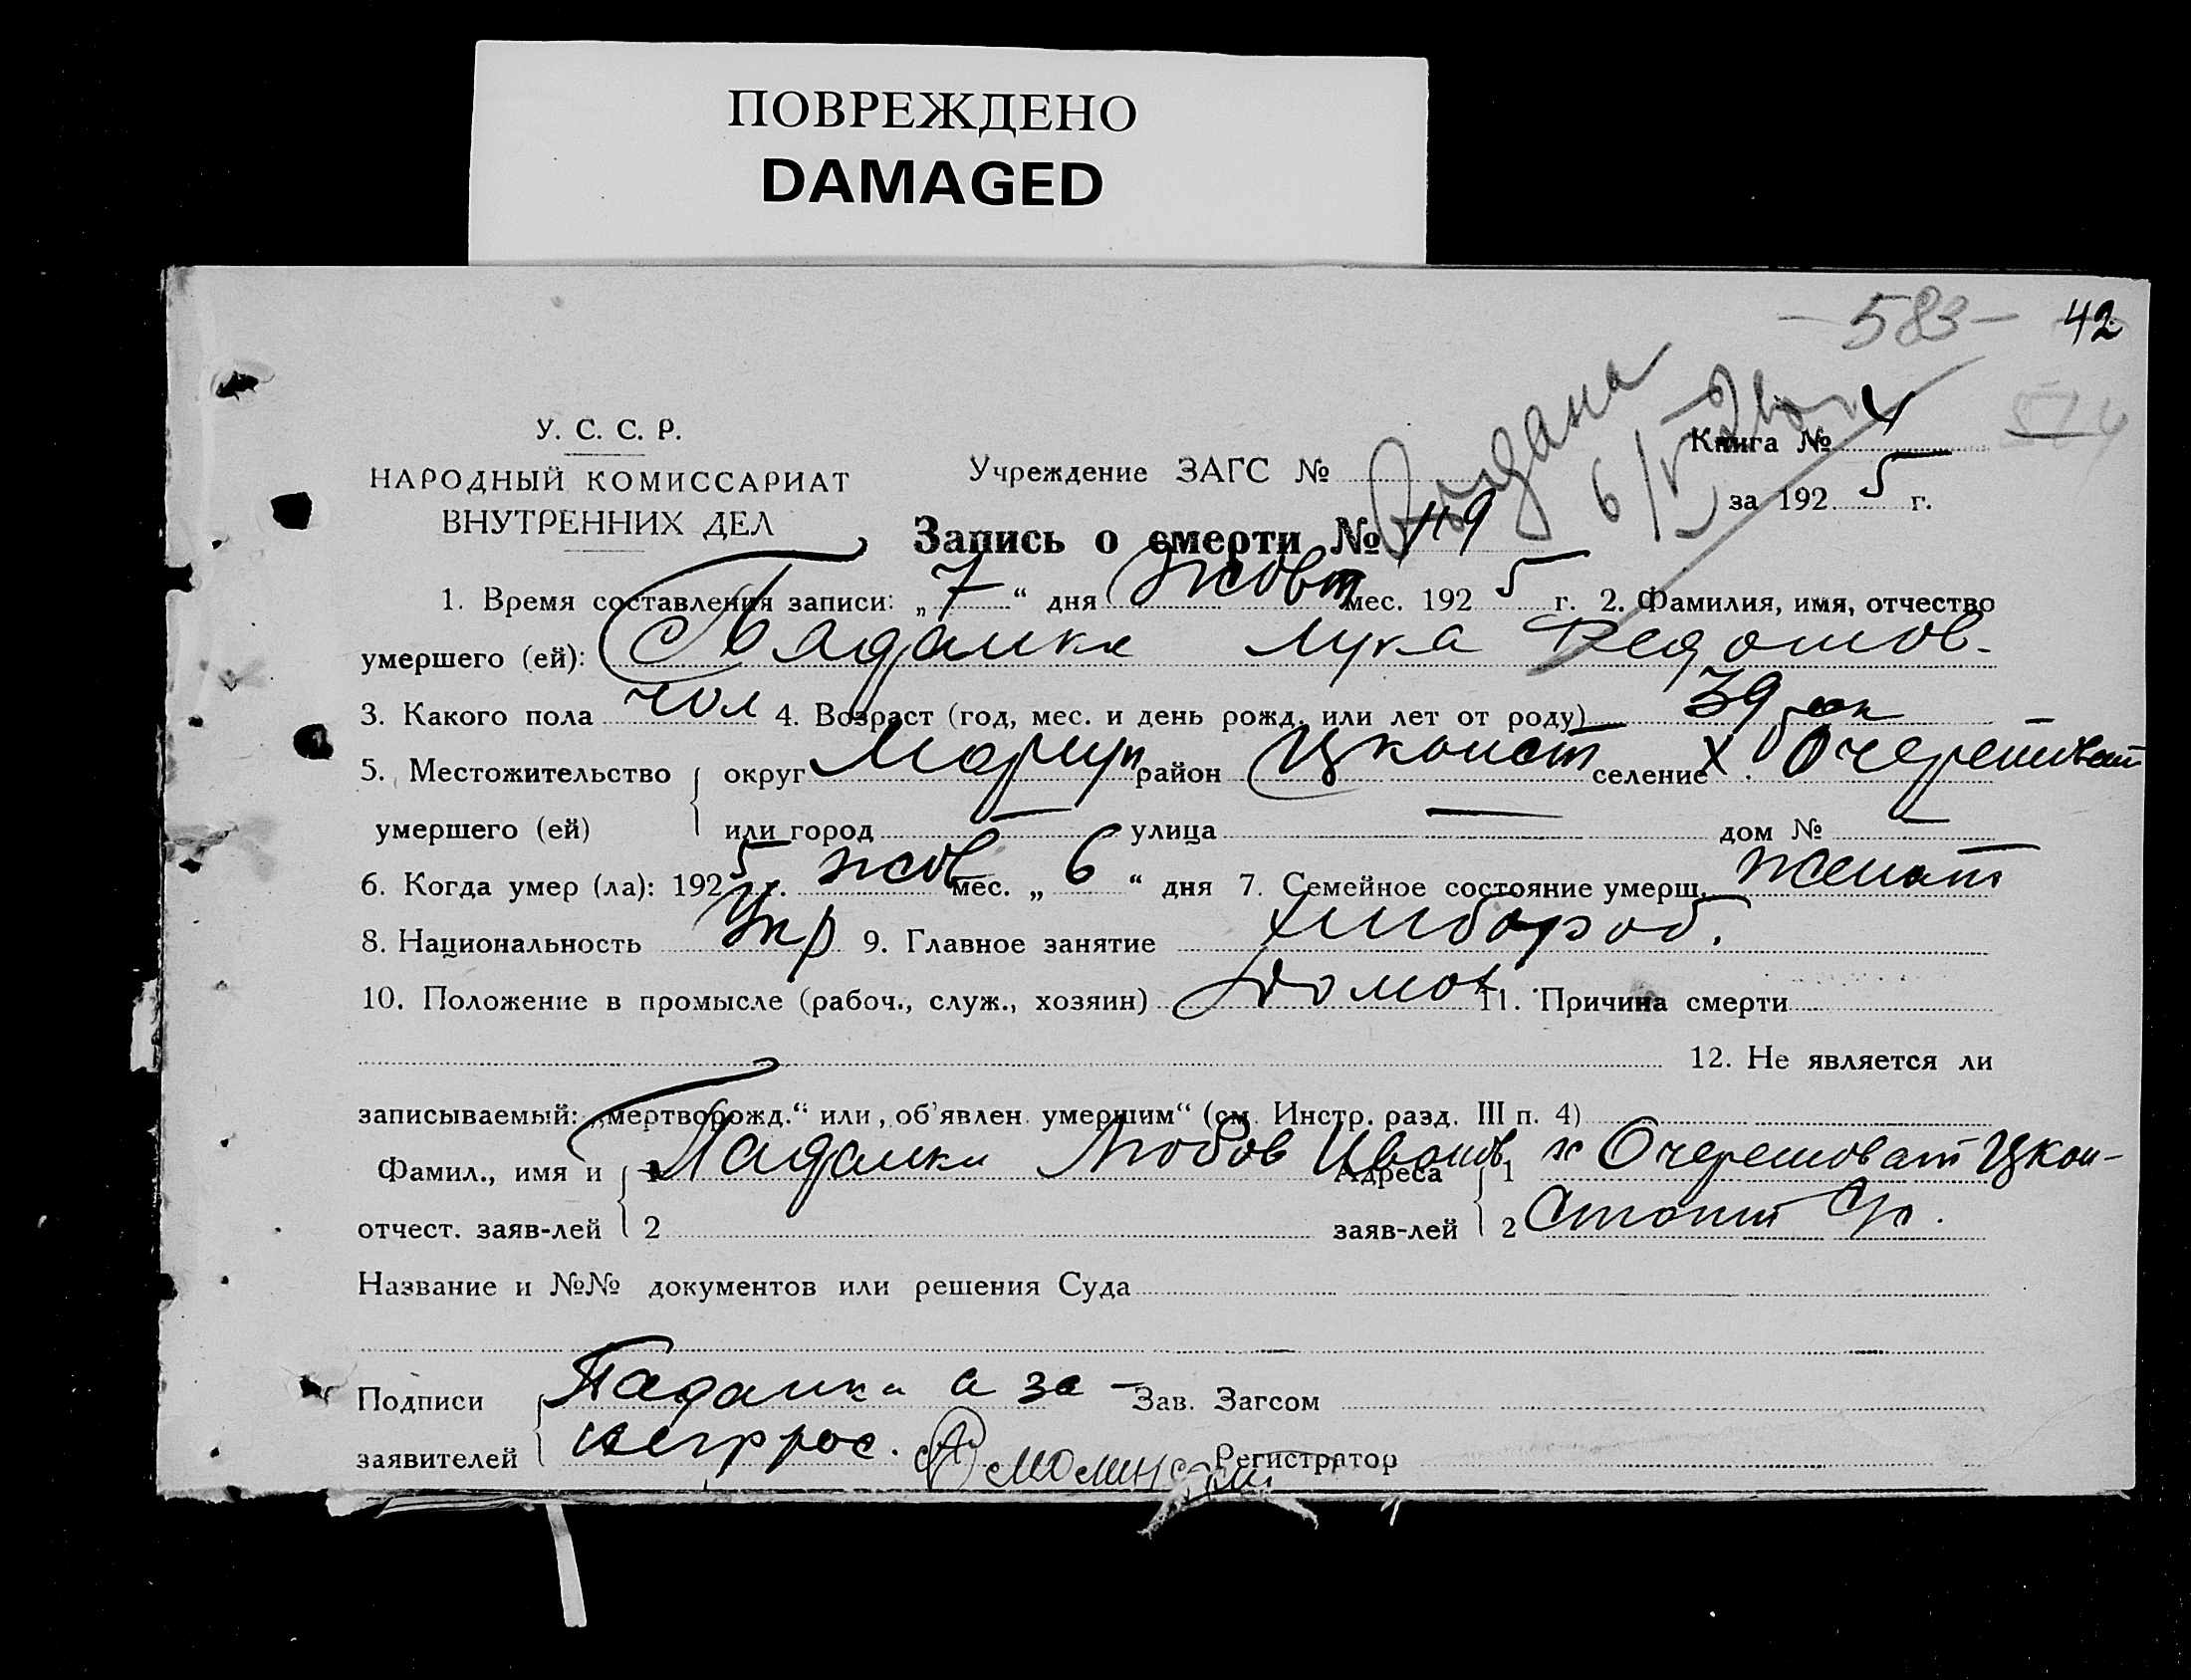 ПОВРЕЖДЕНО
DAMAGED
- 583 - 42
574
У. С. С. Р.
НАРОДНЫЙ КОМИССАРИАТ
ВНУТРЕННИХ ДЕЛ
Учреждение ЗАГС №
Книга № 4
за 192 5 г.
Запись о смерти № 119
1. Время составления записи: „ 7 “ дня Жовт мес. 192 5 г. 2. Фамилия, имя, отчество
умершего (ей): Падалка Лука Федотов-
3. Какого пола чол 4. Возраст (год, мес. и день рожд. или лет от роду) 39 рок
5. Местожительство умершего (ей) { округ Мариуп район Цконст селение х. Очеретоват
или город — улица — дом № —
6. Когда умер (ла): 192 5 г. жов мес. „ 6 “ дня 7. Семейное состояние умерш. женат
8. Национальность Укр 9. Главное занятие хлибороб.
10. Положение в промысле (рабоч., служ., хозяин) 11. Причина смерти
12. Не является ли
записываемый: „мертворожд.“ или „об'явлен умершим“ (см. Инстр. разд. III п. 4)
Фамил., имя и отчест. заяв-лей { 1 Падалка Любов Иванов Адреса заяв-лей { 1 х Очеретоват Цкон-
2 2 стант р.
Название и №№ документов или решения Суда
Подписи заявителей { Падалка а за - Зав. Загсом
Регистратор